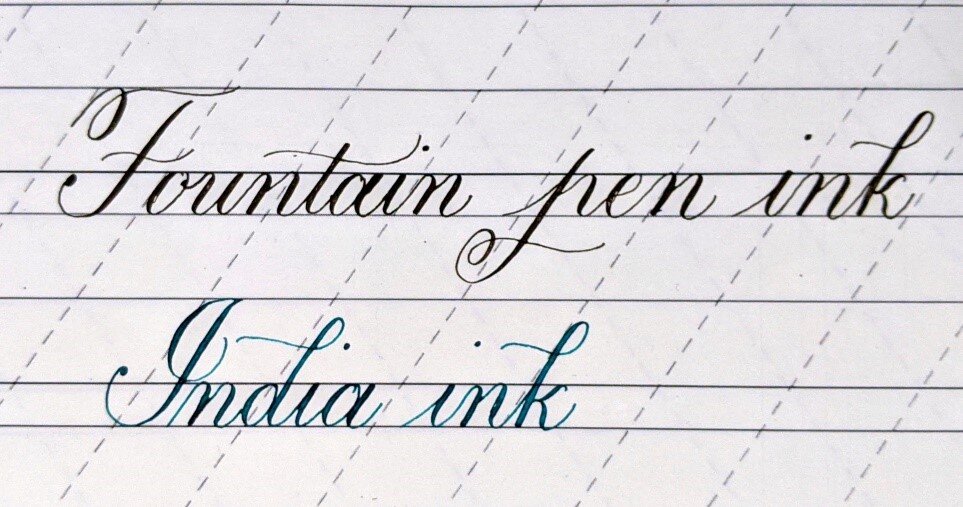 Fountain pen ink
India ink